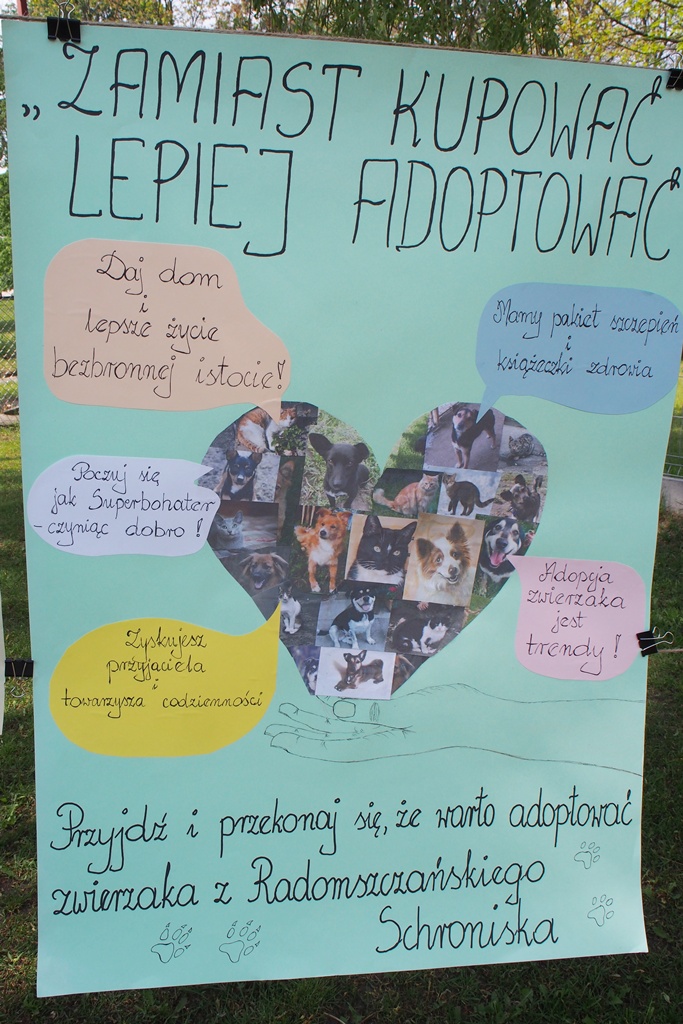 „ZAMIAST KUPOWAĆ
LEPIEJ ADOPTOWAĆ
Daj dom
i
lepsze życie
bezbronnej istocie!
Mamy pakiet szczepień
i
książeczki zdrowia
Poczuj się
jak Superbohater
- czyniąc dobro!
Adopcja
zwierzaka
jest
trendy!
Zyskujesz
przyjaciela
i
towarzysza codzienności
Przyjdź i przekonaj się, że warto adoptować
zwierzaka z Radomszczańskiego
Schroniska